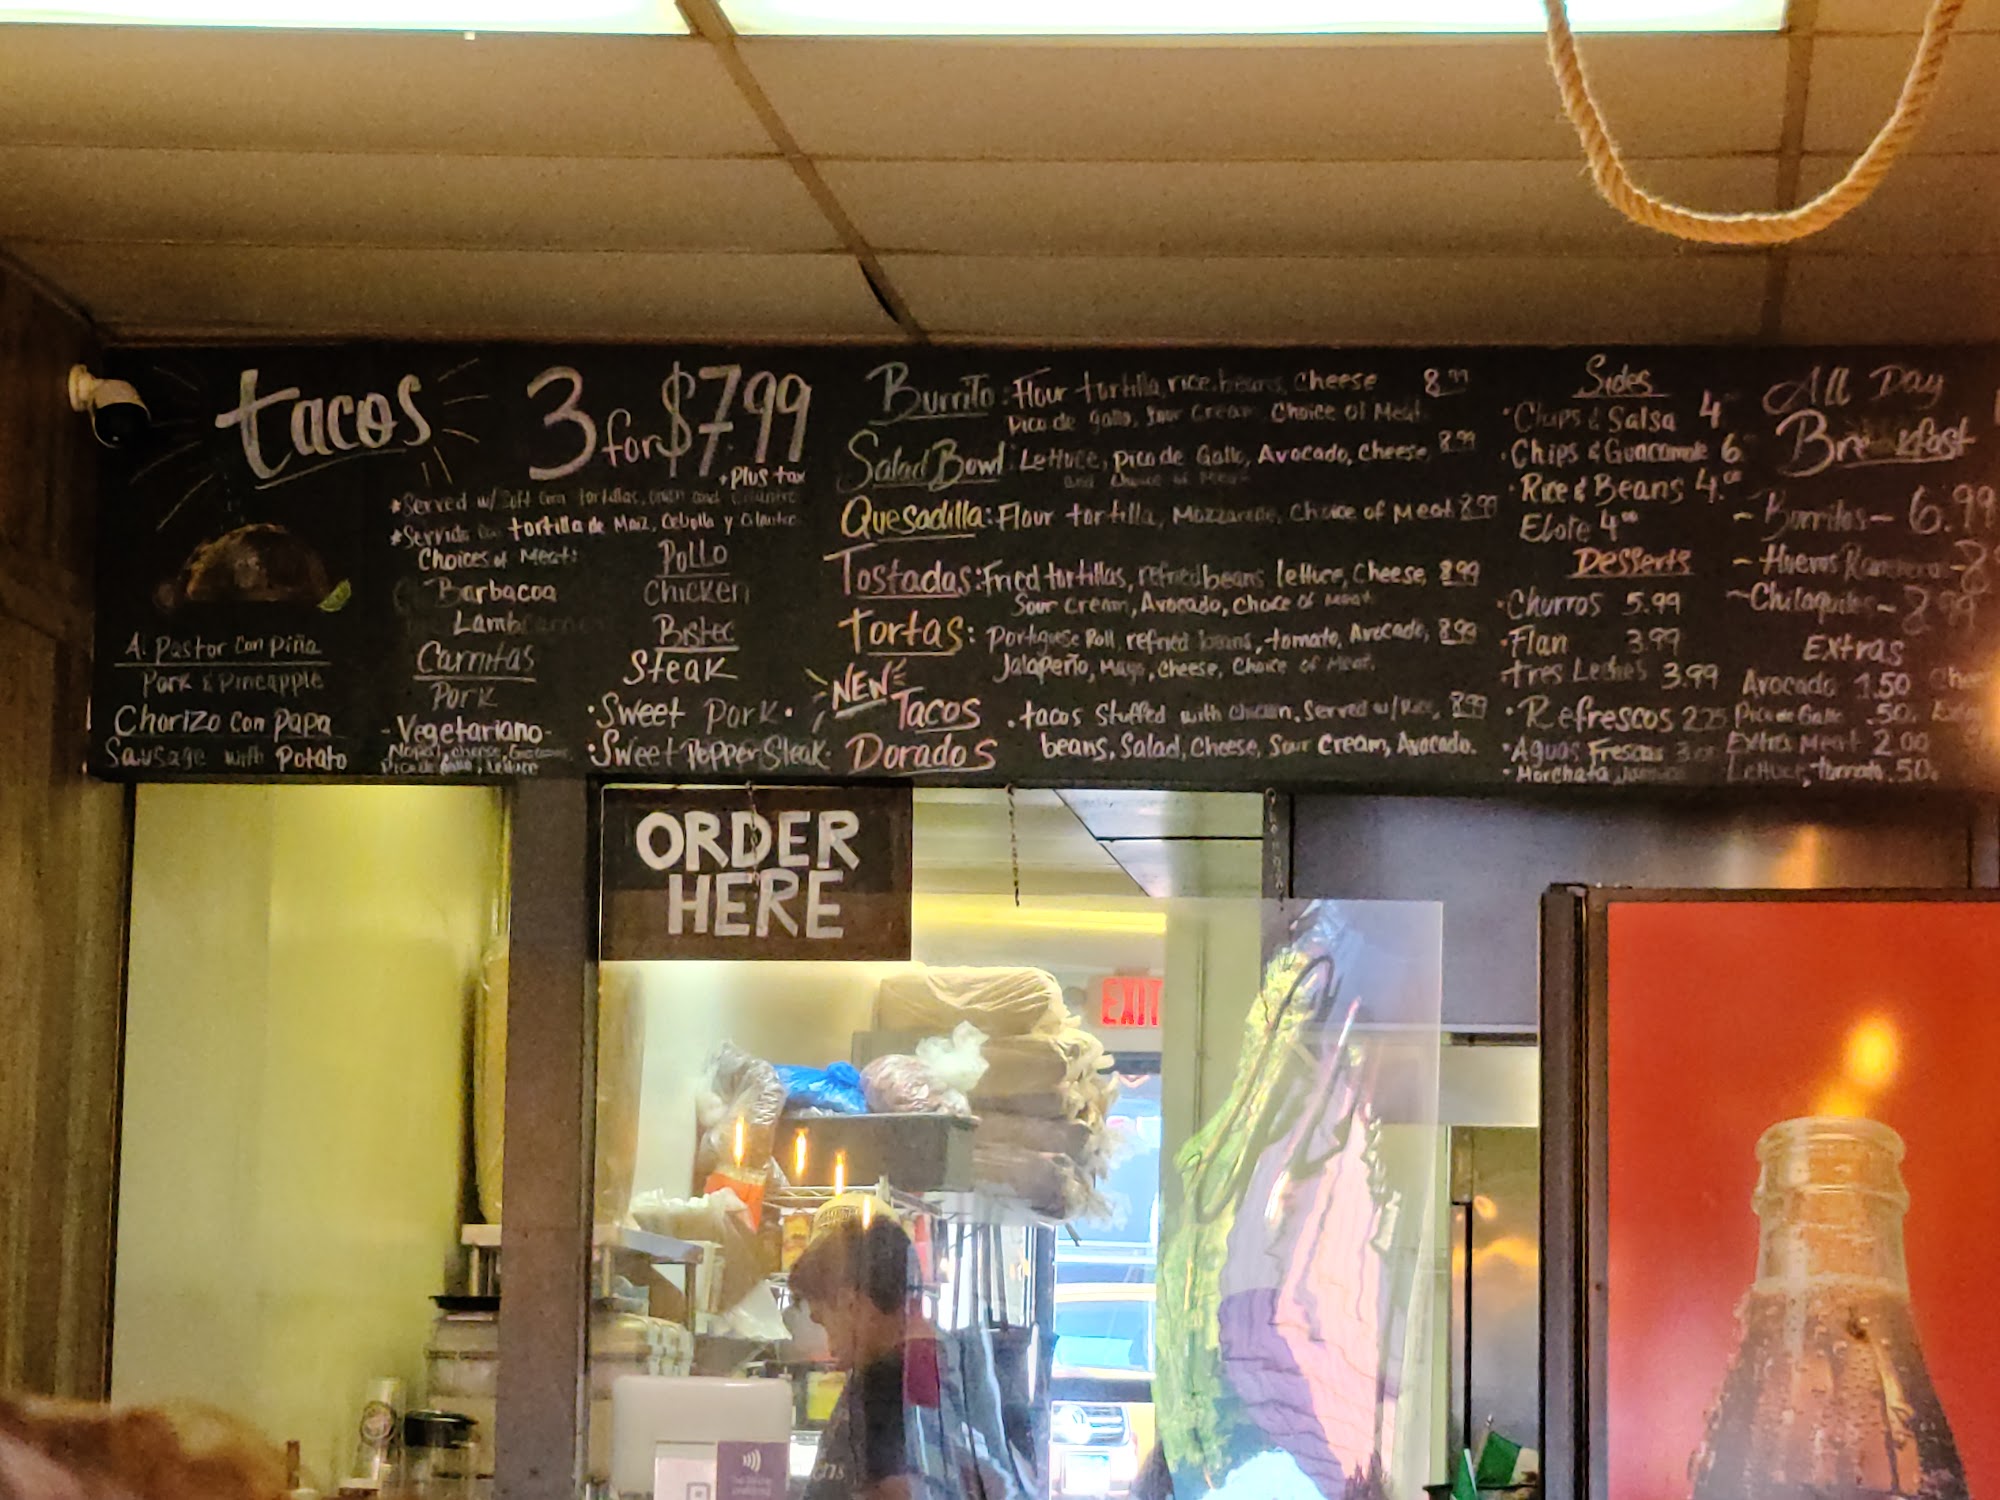 tacos
3 for $7.99
+Plus tax
*Served w/ Soft Corn tortillas, onion and Cilantro
*Servido Con tortilla de Maiz, Cebolla y Cilantro
Choices of Meat:
Al Pastor con Piña
Pork & Pineapple
Chorizo con Papa
Sausage with Potato
Barbacoa
Lamb
Carnitas
Pork
-Vegetariano-
Nopal, cheese,
Pico de Gallo, Lettuce
Pollo
Chicken
Bistec
Steak
·Sweet Pork·
·Sweet Pepper Steak·
Burrito: Flour tortilla, rice, beans, Cheese 8.99
Pico de gallo, Sour Cream Choice of Meat
Salad Bowl: Lettuce, pico de Gallo, Avocado, Cheese, 8.99
and Choice of Meat
Quesadilla: Flour tortilla, Mozzarella, Choice of Meat 8.99
Tostadas: Fried tortillas, refried beans lettuce, Cheese, 8.99
Sour Cream, Avocado, Choice of Meat
Tortas: Portuguese Roll, refried beans, tomato, Avocado, 8.99
Jalapeño, Mayo, Cheese, Choice of Meat.
NEW
Tacos Dorados
·tacos Stuffed with Chicken, Served w/ Rice, 8.99
beans, Salad, Cheese, Sour Cream, Avocado.
Sides
·Chips & Salsa 4
·Chips & Guacamole 6
·Rice & Beans 4.00
Elote 4.00
Desserts
·Churros 5.99
·Flan 3.99
Tres Leches 3.99
·Refrescos 2.25
·Aguas Frescas
·Horchata, Jamaica
All Day
Breakfast
~ Burritos ~ 6.99
~ Huevos Ranchero ~ 8
~ Chilaquiles ~ 8.99
Extras
Avocado 1.50
Pico de Gallo .50
Extra Meat 2.00
Lettuce, tomato .50
ORDER
HERE
EXIT